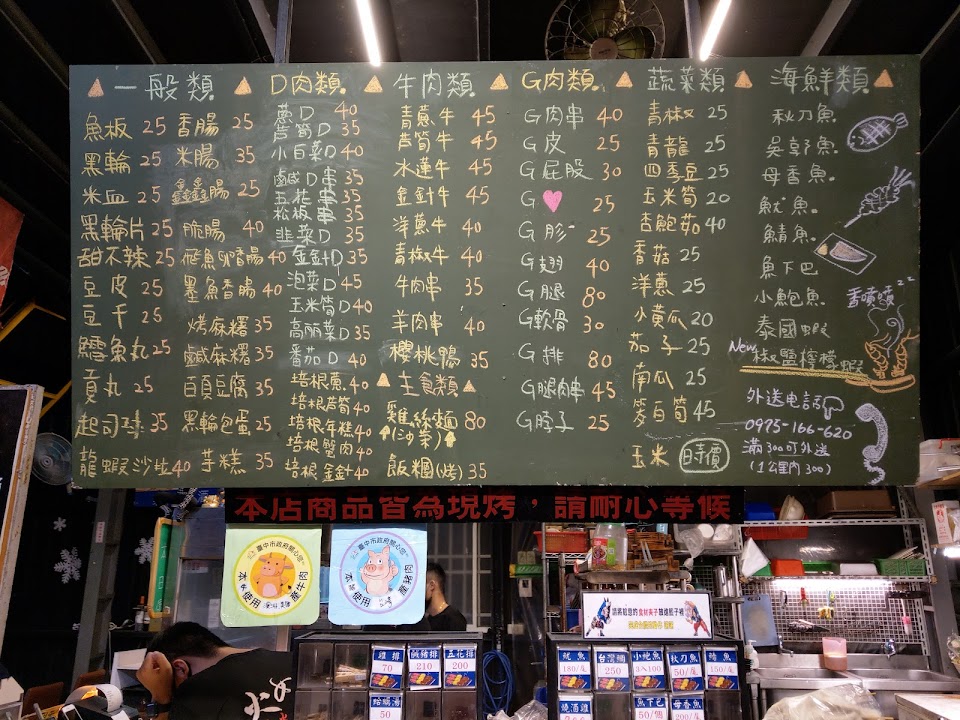 一般類 D肉類 牛肉類 G肉類 蔬菜類 海鮮類
魚板 25
黑輪 25
米血 25
黑輪片 25
甜不辣 25
豆皮 25
豆干 25
鱈魚丸 25
貢丸 25
起司球 35
龍蝦沙拉 40
香腸 25
米腸 35
鑫鑫腸 25
脆腸 40
飛魚卵香腸 40
墨魚香腸 40
烤麻糬 35
鹹麻糬 35
百頁豆腐 35
黑輪包蛋 25
芋糕 35
蔥D 40
蘆筍D 35
小白菜D 40
鹹D串 35
五花串 35
松板串 35
韭菜D 35
金針D 35
泡菜D 45
玉米筍D 40
高麗菜D 35
番茄D 40
培根蔥 40
培根蘆筍 40
培根年糕 40
培根蟹肉 40
培根金針 40
青蔥牛 45
蘆筍牛 45
水蓮牛 45
金針牛 45
洋蔥牛 40
青椒牛 40
牛肉串 35
羊肉串 40
櫻桃鴨 35
主食類
雞絲麵 80
(沙茶)
飯糰(烤) 35
G肉串 40
G皮 25
G屁股 30
G♥ 25
G胗 25
G翅 40
G腿 80
G軟骨 30
G排 80
G腿肉串 45
G脖子 25
青椒 25
青龍 25
四季豆 25
玉米筍 20
杏鮑菇 40
香菇 25
洋蔥 25
小黃瓜 20
茄子 25
南瓜 25
茭白筍 45
玉米 時價
秋刀魚
吳郭魚
母香魚
魷魚
鯖魚
魚下巴
小鮑魚
泰國蝦
New 椒鹽檸檬蝦
香噴噴
外送電話
0975-166-620
滿300可外送
(1公里內300)
本店商品皆為現烤，請耐心等候
臺中市政府關心您
本店使用
產牛肉
臺中市政府關心您
本店使用
產豬肉
雞排 70
鹹豬排 210
五花排 200
魷魚 180/4
台灣鯛 250
小鮑魚 3入100
秋刀魚 50/4
150/4
燒酒雞
魚下巴 50/個
母香魚 200/4
50